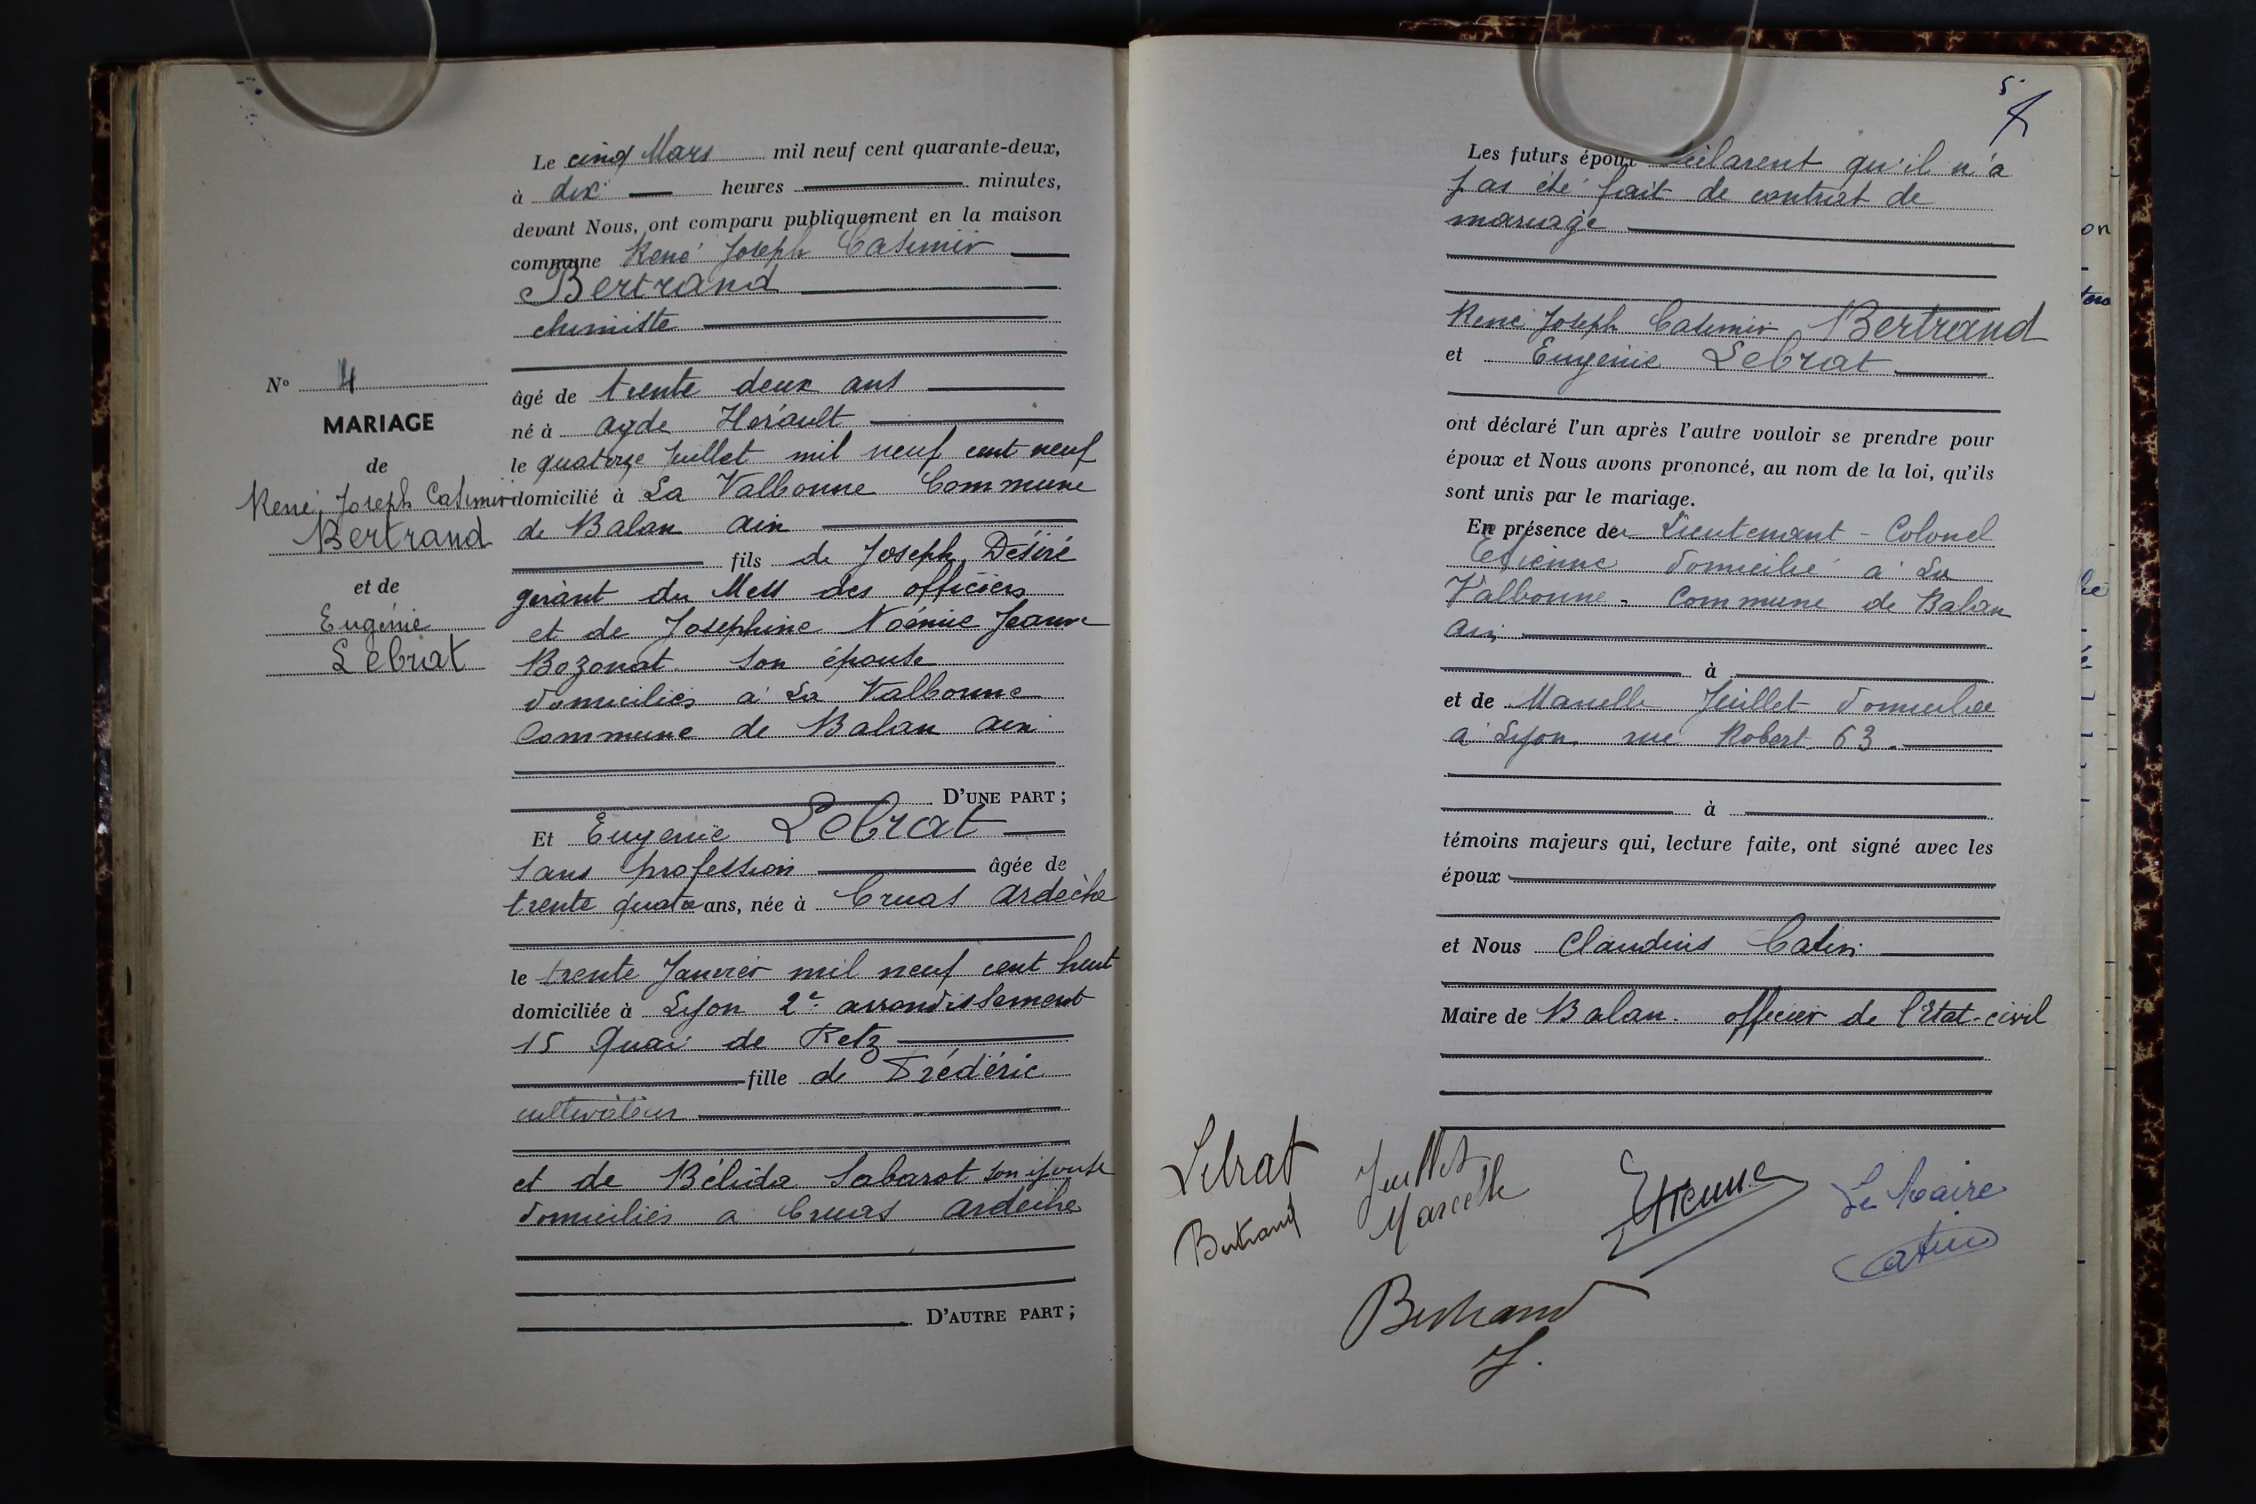 Le cinq Mars mil neuf cent quarante-deux,
à dix heures minutes,
devant Nous, ont comparu publiquement en la maison
commune René Joseph Casimir
Bertrand
chimiste
âgé de trente deux ans
né à agde Hérault
le quatorze Juillet mil neuf cent neuf
domicilié à La Valbonne Commune
de Balan ain
fils de Joseph Désiré
gérant du Mess des officiers
et de Joséphine Noémie Jeanne
Bozonat son épouse
domiciliés à La Valbonne
Commune de Balan ain
D'UNE PART ;
Et Eugenie Lebrat
sans profession âgée de
trente quatre ans, née à Cruas ardèche
le trente Janvier mil neuf cent huit
domiciliée à Lyon 2e arrondissement
15 Quai de Retz
fille de Frédéric
cultivateur
et de Bélida Sabarot son épouse
domiciliés a Cruas ardèche
D'AUTRE PART ;
N° 4
MARIAGE
de
René Joseph Casimir
Bertrand
et de
Eugénie
Lebrat
5
Les futurs époux déclarent qu'il n'a
pas été fait de contrat de
mariage
René Joseph Casimir Bertrand
et Eugenie Lebrat
ont déclaré l'un après l'autre vouloir se prendre pour
époux et Nous avons prononcé, au nom de la loi, qu'ils
sont unis par le mariage.
En présence de Lieutenant-Colonel
Etienne domicilié à La
Valbonne - Commune de Balan
ain
à
et de Marcelle Juillet domiciliée
à Lyon rue Robert 63.
à
témoins majeurs qui, lecture faite, ont signé avec les
époux
et Nous Claudius Catin
Maire de Balan. officier de l'Etat-civil
Lebrat
Bertrand
Juillet
Marcelle
Etienne
Le Maire
Catin
Bertrand
J.